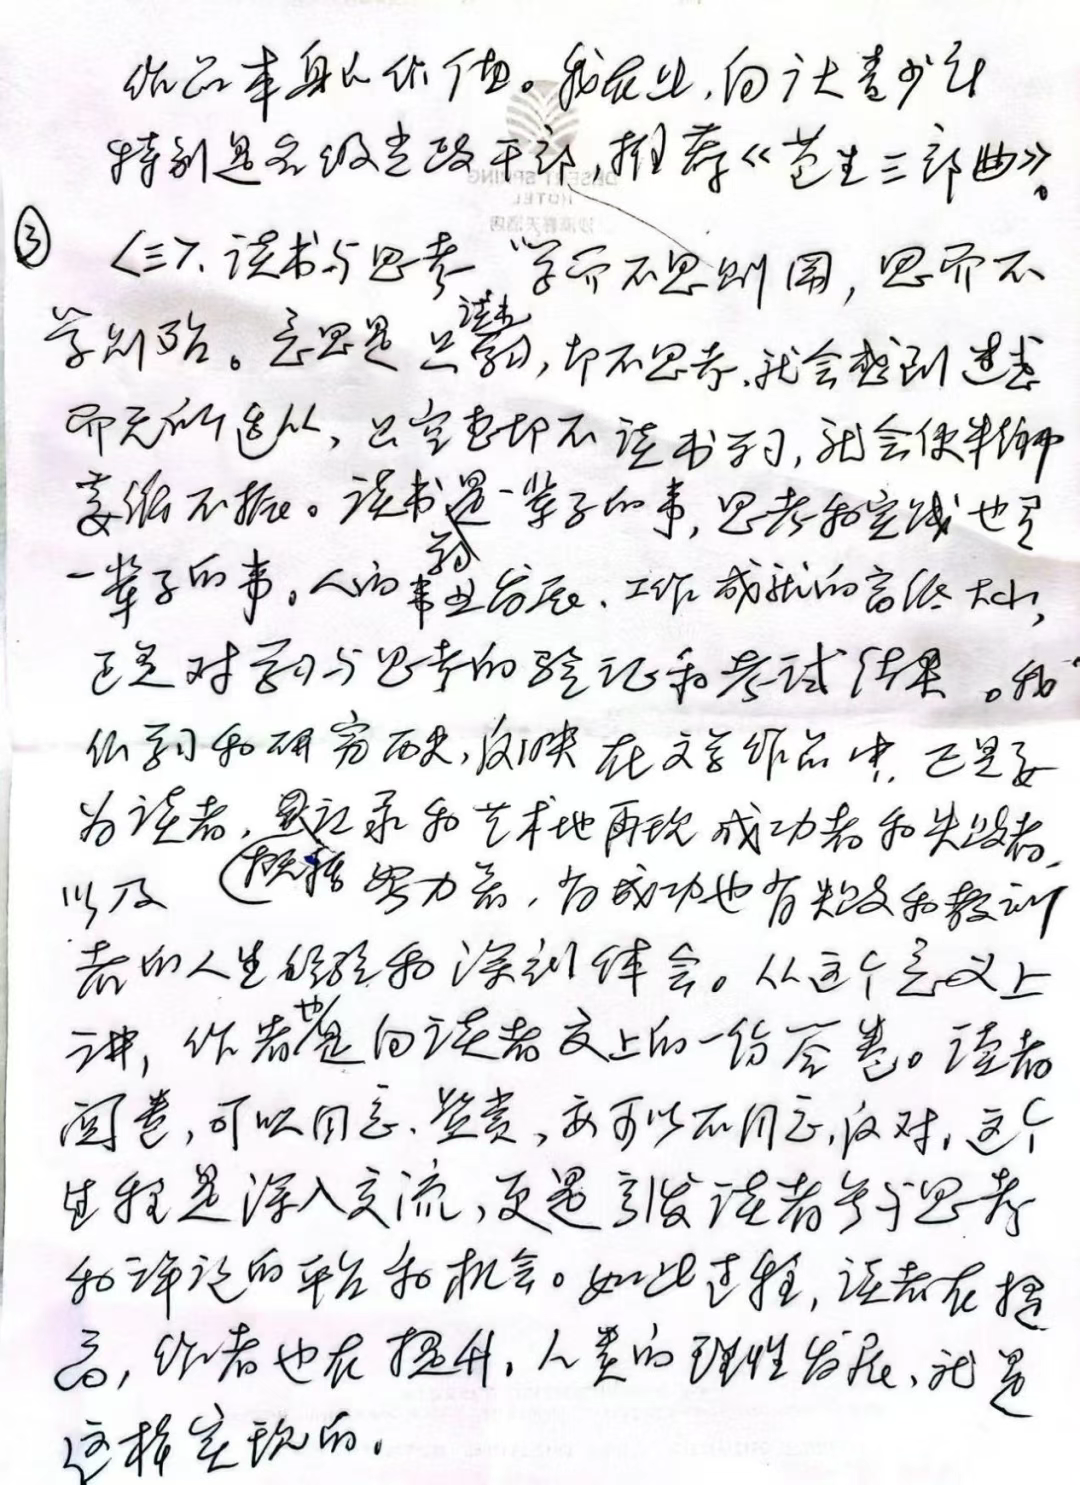 作品本身的价值。我在此,向广大青少年
特别是各级党政干部,推荐《苍生三部曲》。
③ 〈三〉、读书与思考 “学而不思则罔,思而不
学则殆。意思是只读书学习,却不思考,就会感到迷惑
而无所适从,只空想却不读书学习,就会使精神
萎缩不振。读书是一辈子的事,思考和实践也是
一辈子的事。人的事业发展、工作成就的高低大小,
正是对学习与思考的验证和考试结果。我
们学习和研究历史,反映在文学作品中,正是要
为读者,是记录和艺术地再现成功者和失败者,
以及 概括努力者,有成功也有失败和教训
者的人生经验和深刻体会。从这个意义上
讲,作者也是向读者交上的一份答卷。读者
阅卷,可以同意、鉴赏,亦可以不同意,反对,这个
过程是深入交流,更是引发读者参与思考
和评论的平台和机会。如此过程,读者在提
高,作者也在提升。人类的理性发展,就是
这样实现的。
DESERT SPRING
HOTEL
沙漠春天酒店